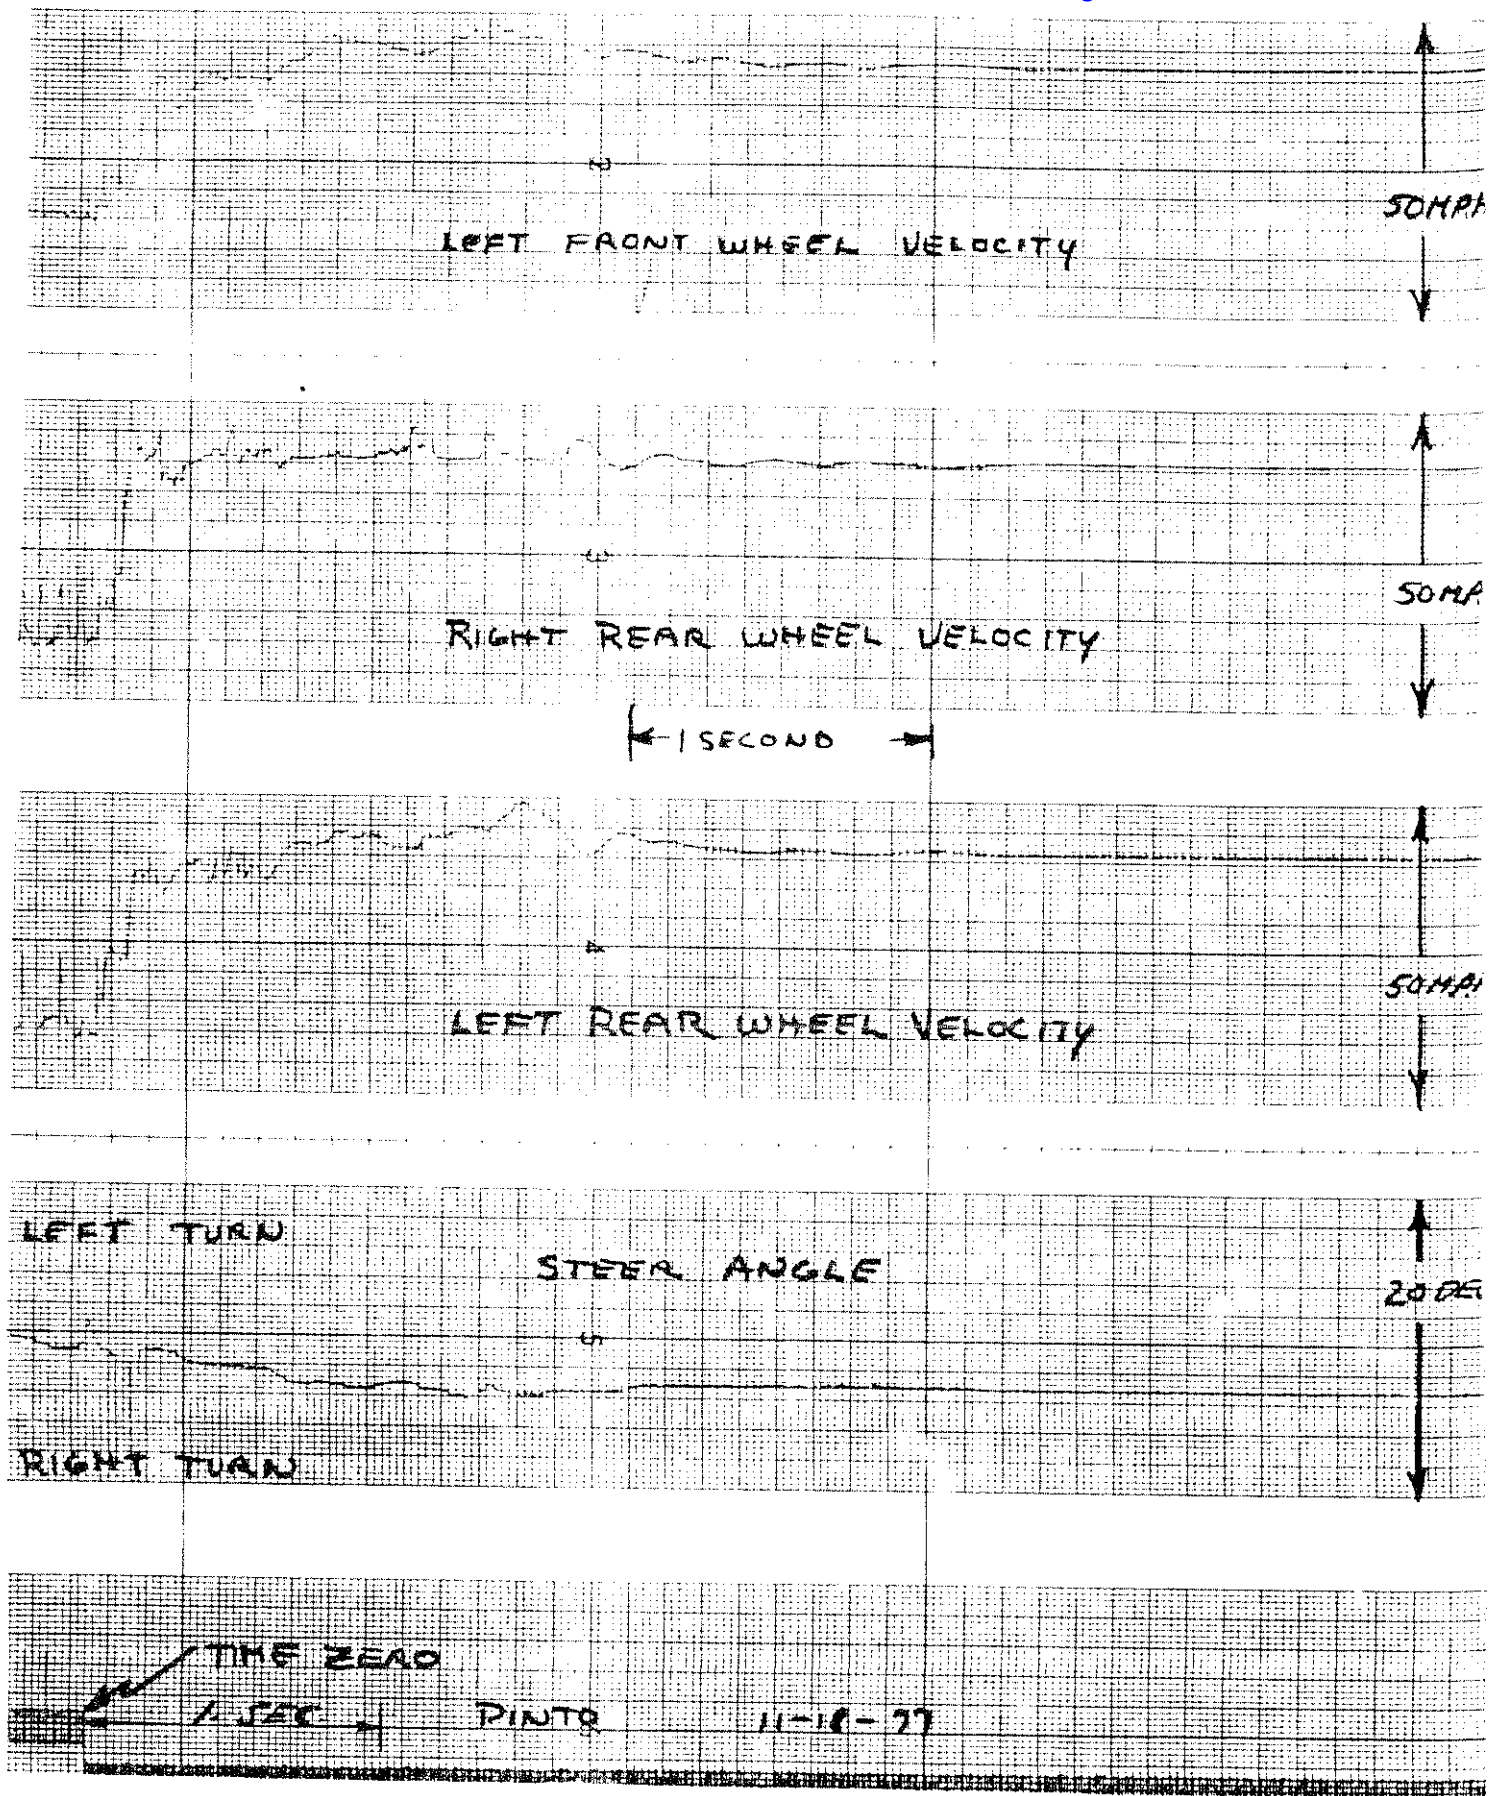 2
50MPH
LEFT FRONT WHEEL VELOCITY
3
50MP
RIGHT REAR WHEEL VELOCITY
1 SECOND
4
50MPH
LEFT REAR WHEEL VELOCITY
LEFT TURN
STEER ANGLE
20 DE
5
RIGHT TURN
TIME ZERO
1 SEC PINTO 11-18-77